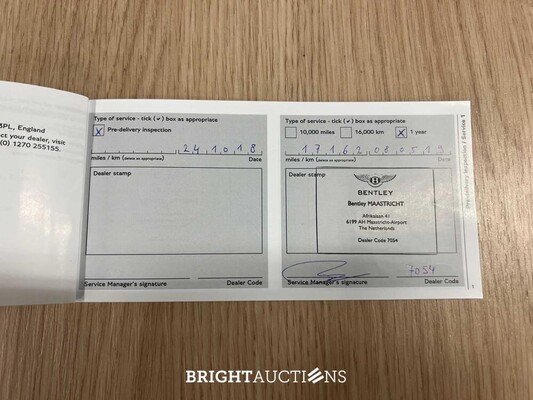 3PL, England
ct your dealer, visit
(0) 1270 255155.
Type of service - tick (✓) box as appropriate
X Pre-delivery inspection
241018
miles / km (delete as appropriate) Date
Dealer stamp
Service Manager's signature Dealer Code
Type of service - tick (✓) box as appropriate
10,000 miles 16,000 km X 1 year
17162 080519
miles / km (delete as appropriate) Date
Dealer stamp
BENTLEY
Bentley MAASTRICHT
Afrikalaan 41
6199 AH Maastricht-Airport
The Netherlands
Dealer Code 7054
7054
Service Manager's signature Dealer Code
Pre-delivery inspection / Service 1
BRIGHTAUCTIONS